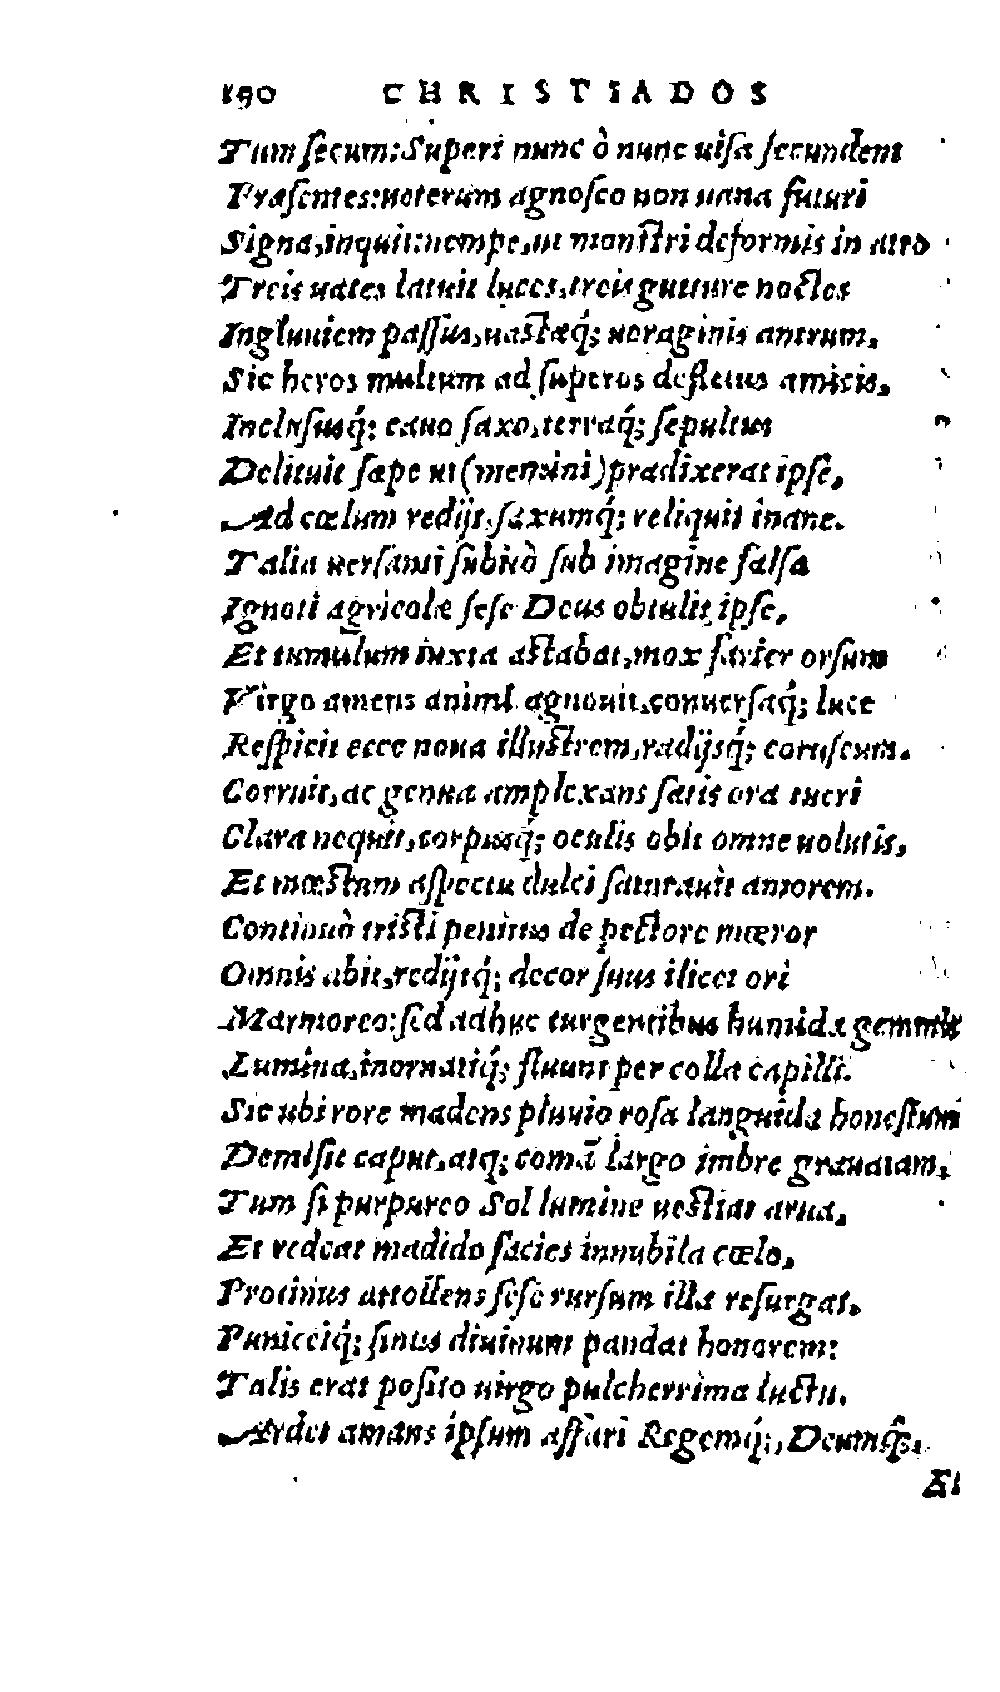 190 CHRISTIADOS
Tum ſecum: Superi nunc ò nunc uiſa ſecundent
Præſentes: ueterum agnoſco non uana futuri
Signa, inquit: nempe, ut monſtri deformis in aluo
Treis uates latuit luces, treis gutture noctes
Ingluuiem paſſus, uaſtæq́; uoraginis antrum,
Sic heros multum ad ſuperos defletus amicis,
Incluſusq́; cauo ſaxo, terraq́; ſepultus
Delituit ſæpe ut (memini) prædixerat ipſe,
Ad cœlum redijt, ſaxumq́; reliquit inane.
Talia uerſanti ſubitò ſub imagine falſa
Ignoti agricolæ ſeſe Deus obtulit ipſe,
Et tumulum iuxta aſtabat, mox farier orſum
Virgo amens animi agnouit, conuerſaq́; luce
Reſpicit ecce noua illuſtrem, radijsq́; coruſcum.
Corruit, ac genua amplexans ſatis ora tueri
Clara nequit, corpusq́; oculis obit omne uolutis,
Et mœſtum aſpectu dulci ſaturauit amorem.
Continuò triſti penitus de pectore mœror
Omnis abit, redijtq́; decor ſuus ilicet ori
Marmoreo: ſed adhuc turgentibus humida gemmis
Lumina, inornatiq́; fluunt per colla capilli.
Sic ubi rore madens pluuio roſa languida honeſtum
Demiſit caput, atq; comā largo imbre grauatam,
Tum ſi purpureo Sol lumine ueſtiat arua,
Et redeat madido facies innubila cœlo,
Protinus attollens ſeſe rurſum illa reſurgat,
Puniceiq́; ſinus diuinum pandat honorem:
Talis erat poſito uirgo pulcherrima luctu.
Ardet amans ipſum affari Regemq́;, Deumq́;,
Et